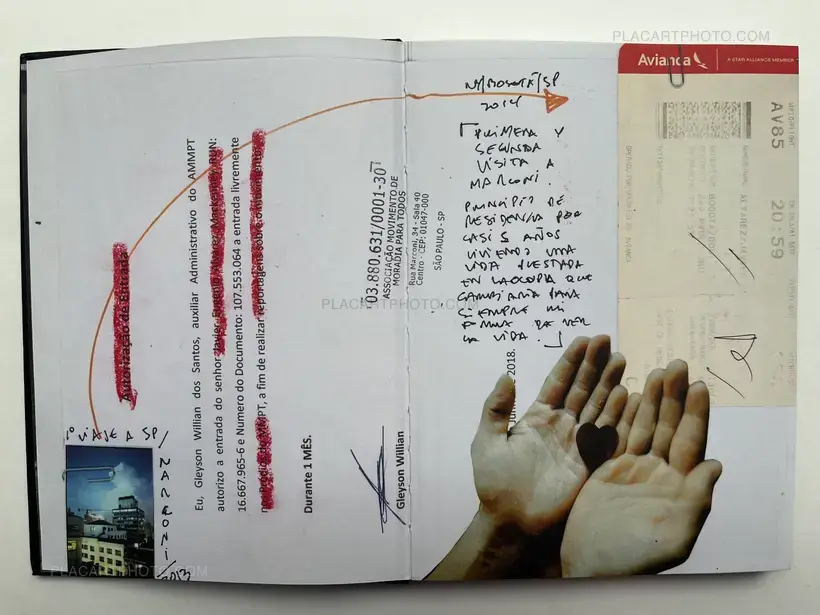 PLACARTPHOTO.COM
Autorização de Entrada
Eu, Gleyson Willian dos Santos, auxiliar Administrativo do AMMPT
autorizo a entrada do senhor
16.667.965-6 e Numero do Documento: 107.553.064 a entrada livremente
MMPT, a fim de realizar reportagens sobre o
Durante 1 MÊS.
Gleyson Willian
03.880.631/0001-30
ASSOCIAÇÃO MOVIMENTO DE
MORADIA PARA TODOS
Rua Marconi, 34 - Sala 40
Centro - CEP: 01047-000
SÃO PAULO - SP
de 2018.
1º VIAJE A SP/
MARCONI/
2013
NY/BOGOTÁ/SP
2014
PRIMERA Y
SEGUNDA
VISITA A
MARCONI.
PRINCIPIO DE
RESIDENCIA POR
CASI 5 AÑOS
VIVIENDO UNA
VIDA PRESTADA
EN LA COPIA QUE
CAMBIARIA PARA
SIEMPRE MI
FORMA DE VER
LA VIDA.
Avianca
A STAR ALLIANCE MEMBER
AV85
20:59
PLACARTPHOTO.COM
PLACARTPHOTO.COM